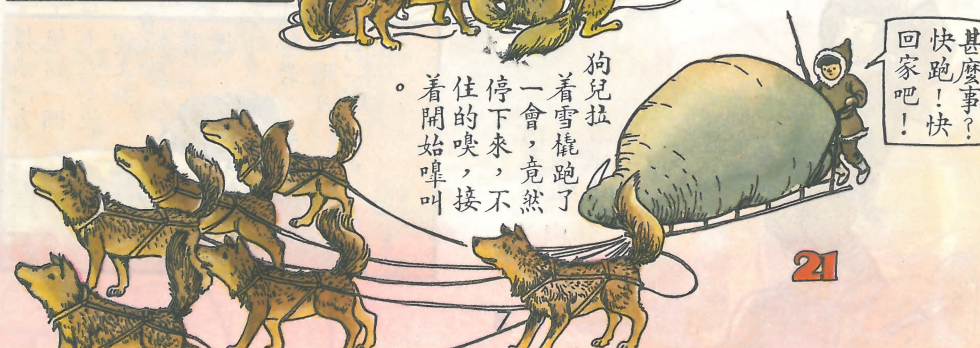 甚麼事？
快跑！快
回家吧！
狗兒拉
着雪橇跑了
一會，竟然
停下來，不
住的嗅，接
着開始嗥叫
。
21